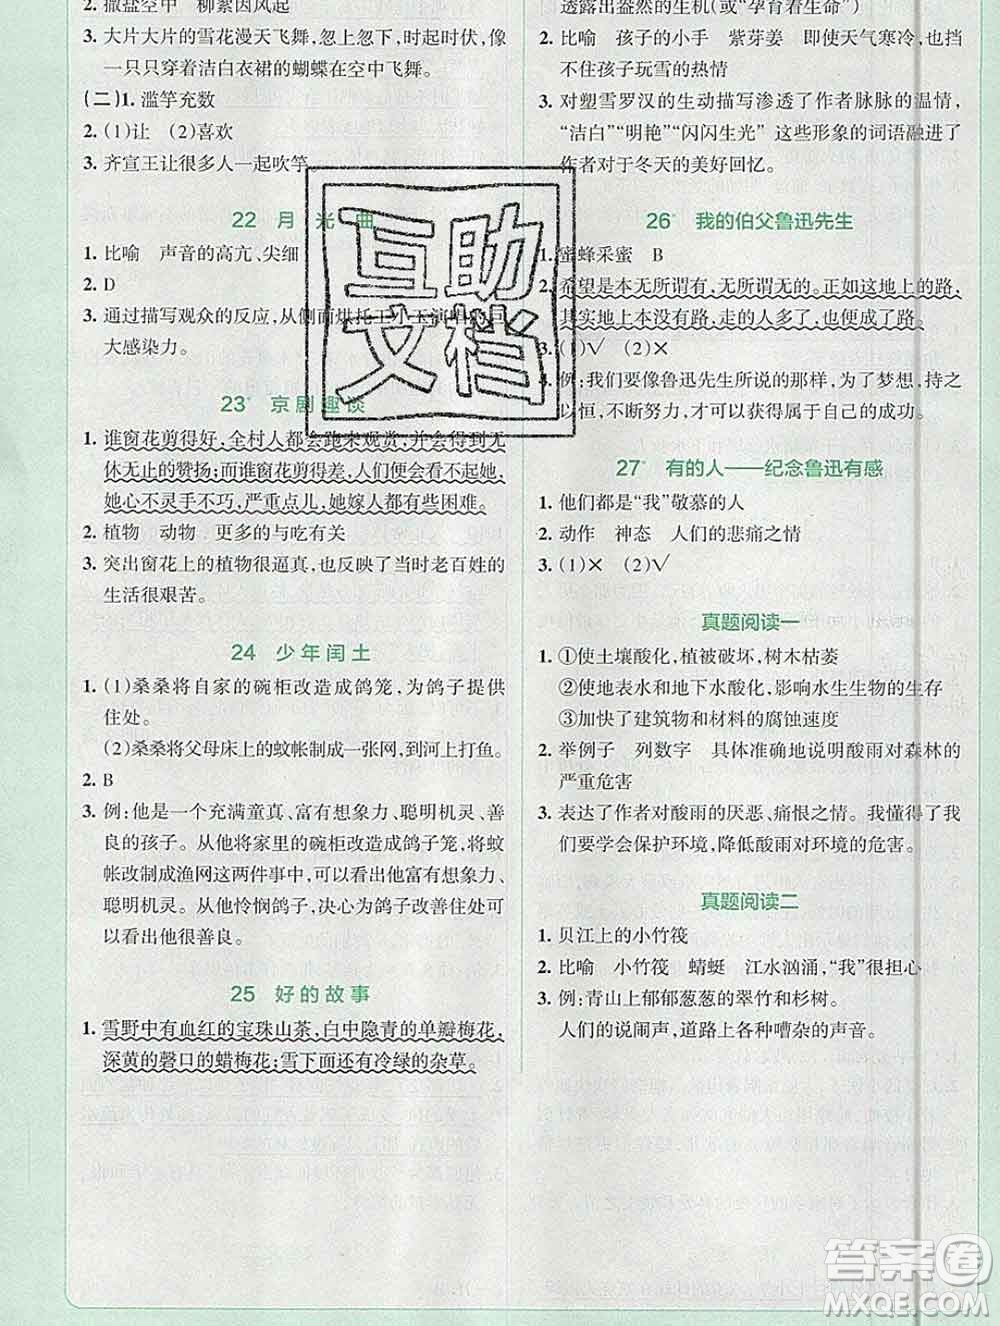 2. 撒盐空中 柳絮因风起
3. 大片大片的雪花漫天飞舞,忽上忽下,时起时伏,像
一只只穿着洁白衣裙的蝴蝶在空中飞舞。
(二)1. 滥竽充数
2. (1)让 (2)喜欢
3. 齐宣王让很多人一起吹竽。
22 月光曲
1. 比喻 声音的高亢、尖细
2. D
3. 通过描写观众的反应,从侧面烘托王小玉演唱的巨
大感染力。
23* 京剧趣谈
1. 谁窗花剪得好,全村人都会跑来观赏,并会得到无
休无止的赞扬;而谁窗花剪得差,人们便看不起她,
她心不灵手不巧,严重点儿,她嫁人都有些困难。
2. 植物 动物 更多的与吃有关
3. 突出窗花上的植物很逼真,也反映了当时老百姓的
生活很艰苦。
24 少年闰土
1. (1)桑桑将自家的碗柜改造成鸽笼,为鸽子提供
住处。
(2)桑桑将父母床上的蚊帐制成一张网,到河上打鱼。
2. B
3. 例:他是一个充满童真,富有想象力、聪明机灵、善
良的孩子。从他将家里的碗柜改造成鸽子笼,将蚊
帐改制成渔网这两件事中,可以看出他富有想象力、
聪明机灵。从他怜悯鸽子,决心为鸽子改善住处可
以看出他很善良。
25 好的故事
1. 雪野中有血红的宝珠山茶,白中隐青的单瓣梅花,
深黄的磬口的蜡梅花;雪下面还有冷绿的杂草。
透露出盎然的生机(或“孕育着生命”)
2. 比喻 孩子的小手 紫芽姜 即使天气寒冷,也挡
不住孩子玩雪的热情
3. 对塑雪罗汉的生动描写渗透了作者脉脉的温情,
“洁白”“明艳”“闪闪生光”这些形象的词语融进了
作者对于冬天的美好回忆。
26* 我的伯父鲁迅先生
1. 蜜蜂采蜜 B
2. 希望是本无所谓有,无所谓无的。正如这地上的路,
其实地上本没有路,走的人多了,也便成了路。
3. (1)√ (2)×
4. 例:我们要像鲁迅先生所说的那样,为了梦想,持之
以恒,不断努力,才能获得属于自己的成功。
27* 有的人——纪念鲁迅有感
1. 他们都是“我”敬慕的人
2. 动作 神态 人们的悲痛之情
3. (1)× (2)√
真题阅读一
1. ①使土壤酸化,植被破坏,树木枯萎
②使地表水和地下水酸化,影响水生生物的生存
③加速了建筑物和材料的腐蚀速度
2. 举例子 列数字 具体准确地说明酸雨对森林的
严重危害
3. 表达了作者对酸雨的厌恶、痛恨之情。我懂得了我
们要学会保护环境,降低酸雨对环境的危害。
真题阅读二
1. 贝江上的小竹筏
2. 比喻 小竹筏 蜻蜓 江水汹涌,“我”很担心
3. 例:青山上郁郁葱葱的翠竹和杉树。
人们的说闹声,道路上各种嘈杂的声音。
互助
文档
答案圈
MXQE.COM